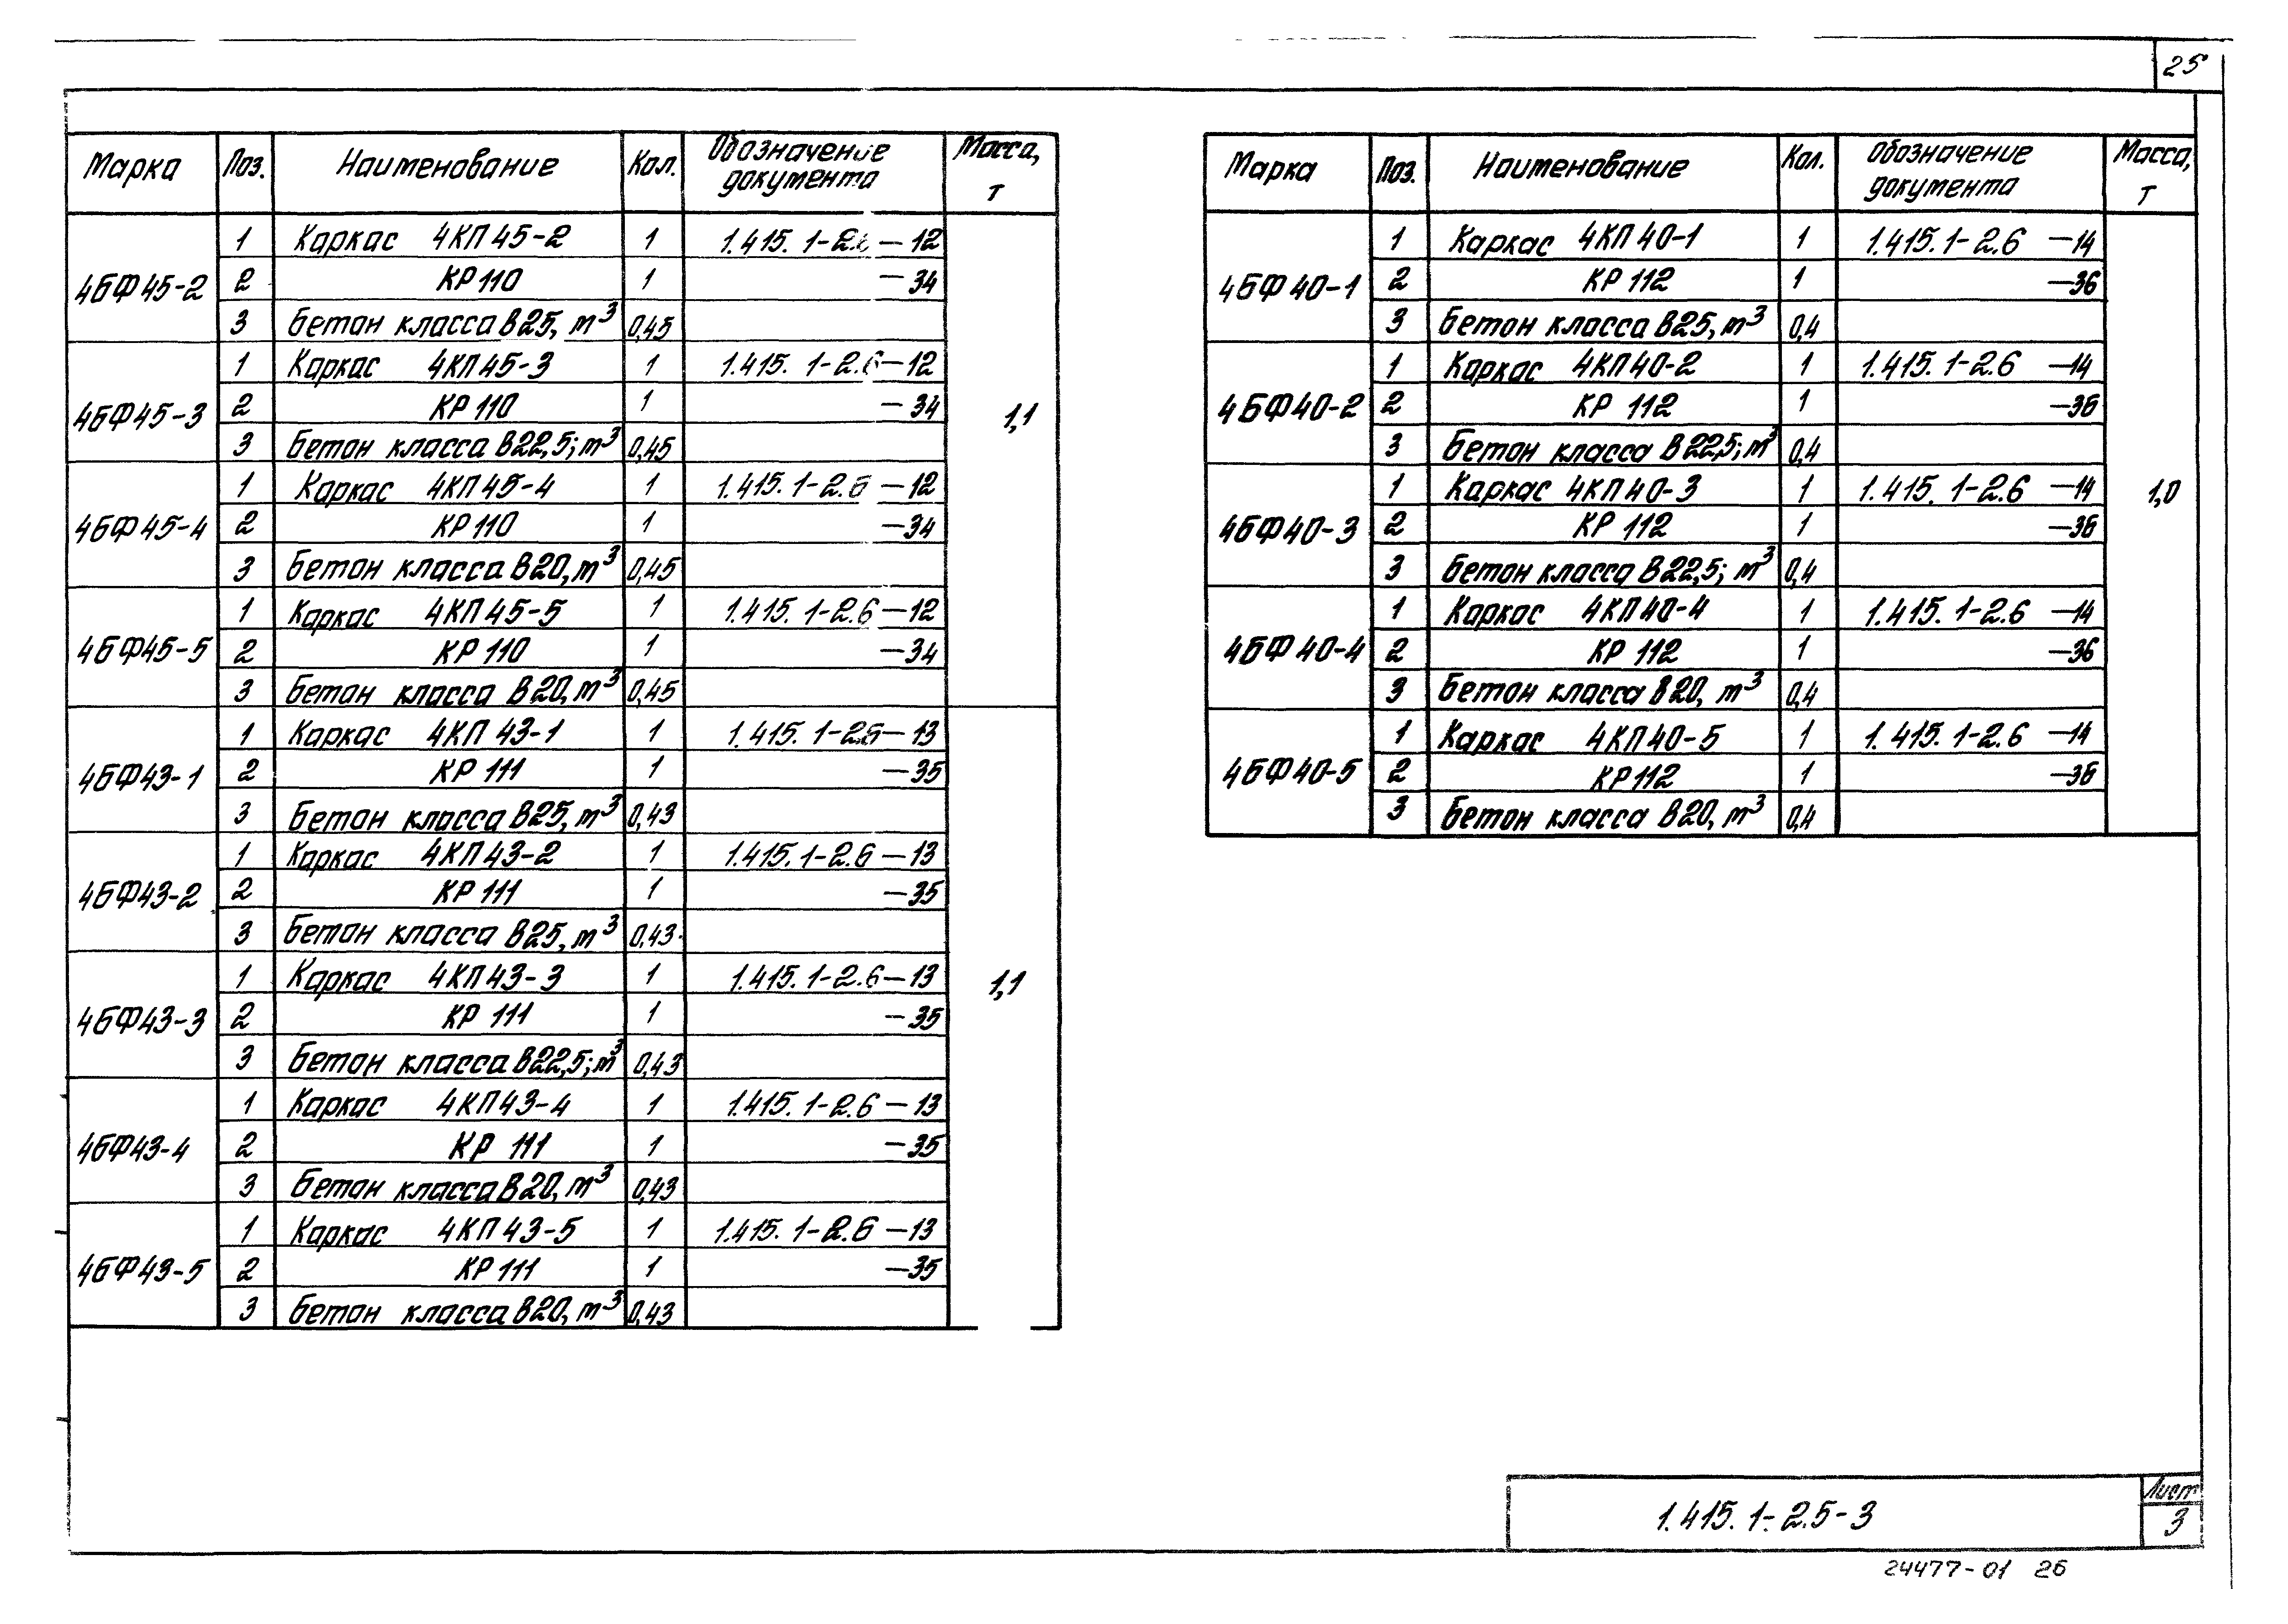 25
Марка Поз. Наименование Кол. Обозначение документа Масса, т
4БФ45-2 1 Каркас 4КП45-2 1 1.415.1-2.6 —12
2 КР110 1 —34
3 Бетон класса В25, м³ 0,45
4БФ45-3 1 Каркас 4КП45-3 1 1.415.1-2.6 —12
2 КР110 1 —34
3 Бетон класса В22,5; м³ 0,45
1,1
4БФ45-4 1 Каркас 4КП45-4 1 1.415.1-2.6 —12
2 КР110 1 —34
3 Бетон класса В20, м³ 0,45
4БФ45-5 1 Каркас 4КП45-5 1 1.415.1-2.6 —12
2 КР110 1 —34
3 Бетон класса В20, м³ 0,45
4БФ43-1 1 Каркас 4КП43-1 1 1.415.1-2.6 —13
2 КР111 1 —35
3 Бетон класса В25, м³ 0,43
4БФ43-2 1 Каркас 4КП43-2 1 1.415.1-2.6 —13
2 КР111 1 —35
3 Бетон класса В25, м³ 0,43
4БФ43-3 1 Каркас 4КП43-3 1 1.415.1-2.6 —13
1,1
2 КР111 1 —35
3 Бетон класса В22,5; м³ 0,43
4БФ43-4 1 Каркас 4КП43-4 1 1.415.1-2.6 —13
2 КР 111 1 —35
3 Бетон класса В20, м³ 0,43
4БФ43-5 1 Каркас 4КП43-5 1 1.415.1-2.6 —13
2 КР111 1 —35
3 Бетон класса В20, м³ 0,43
Марка Поз. Наименование Кол. Обозначение документа Масса, т
4БФ40-1 1 Каркас 4КП40-1 1 1.415.1-2.6 —14
2 КР112 1 —36
3 Бетон класса В25, м³ 0,4
4БФ40-2 1 Каркас 4КП40-2 1 1.415.1-2.6 —14
2 КР 112 1 —36
3 Бетон класса В22,5; м³ 0,4
4БФ40-3 1 Каркас 4КП40-3 1 1.415.1-2.6 —14
1,0
2 КР 112 1 —36
3 Бетон класса В22,5; м³ 0,4
4БФ40-4 1 Каркас 4КП40-4 1 1.415.1-2.6 —14
2 КР 112 1 —36
3 Бетон класса В20, м³ 0,4
4БФ40-5 1 Каркас 4КП40-5 1 1.415.1-2.6 —14
2 КР112 1 —36
3 Бетон класса В20, м³ 0,4
1.415.1-2.5-3
Лист
3
24477-01 26